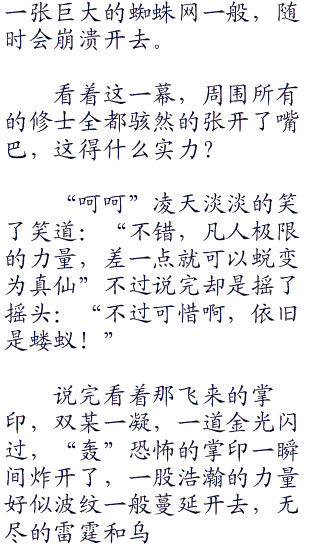 一张巨大的蜘蛛网一般，随
时会崩溃开去。
看着这一幕，周围所有
的修士全都骇然的张开了嘴
巴，这得什么实力？
“呵呵”凌天淡淡的笑
了笑道：“不错，凡人极限
的力量，差一点就可以蜕变
为真仙”不过说完却是摇了
摇头：“不过可惜啊，依旧
是蝼蚁！”
说完看着那飞来的掌
印，双某一凝，一道金光闪
过，“轰”恐怖的掌印一瞬
间炸开了，一股浩瀚的力量
好似波纹一般蔓延开去，无
尽的雷霆和乌